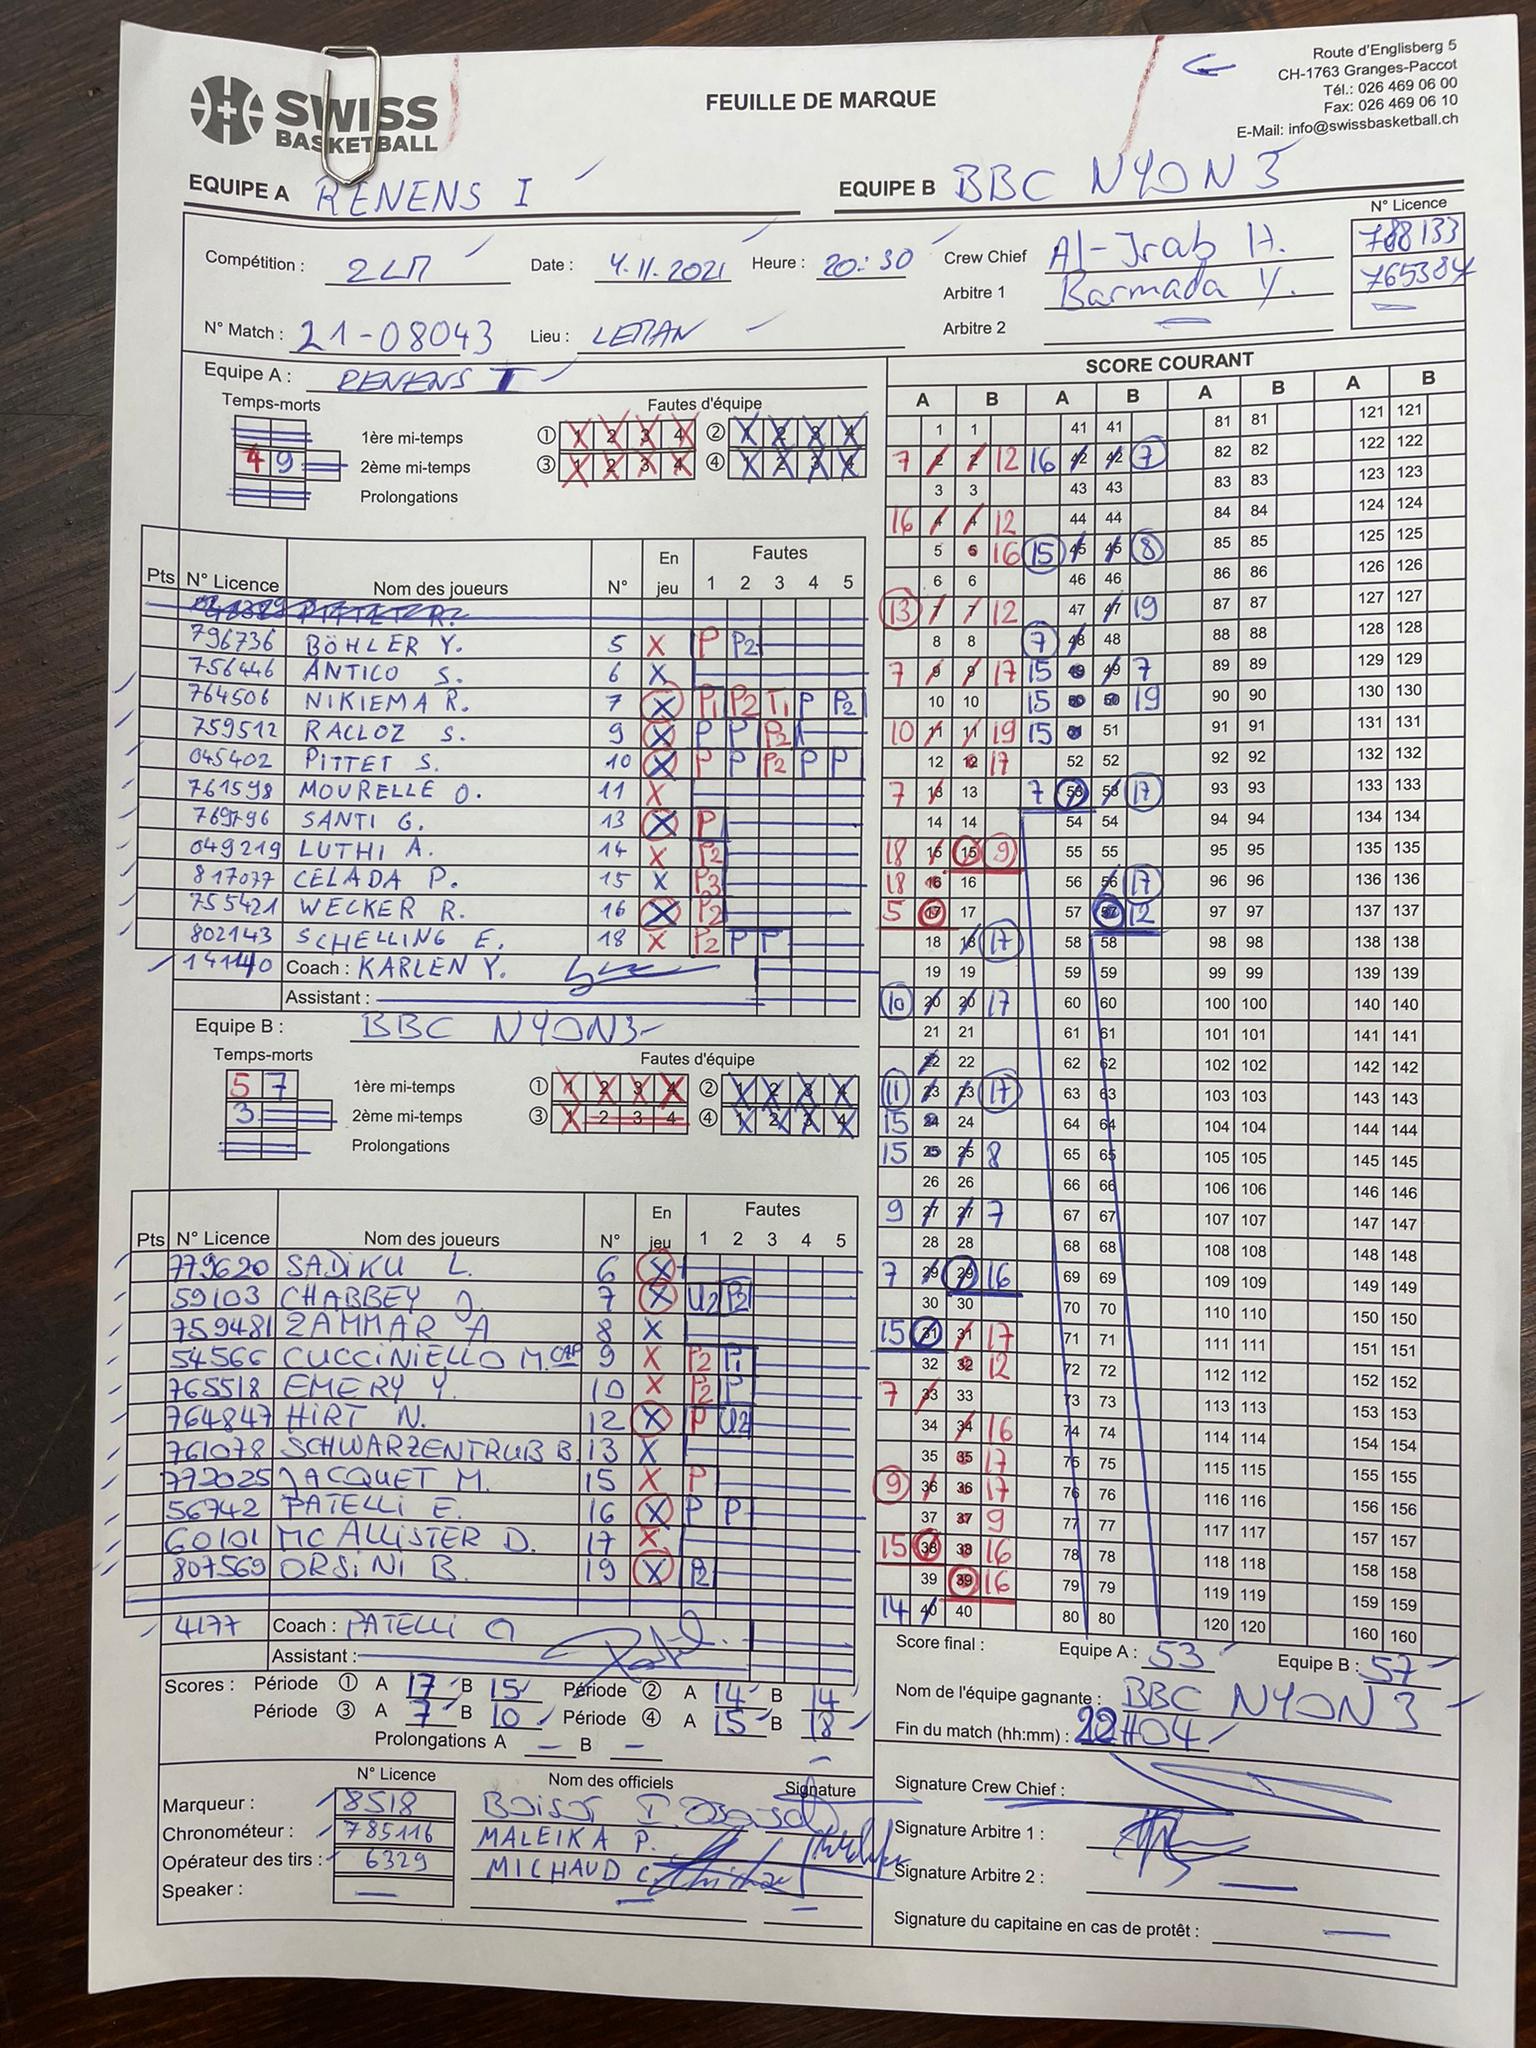 SWISS
BASKETBALL
FEUILLE DE MARQUE
Route d'Englisberg 5
CH-1763 Granges-Paccot
Tél.: 026 469 06 00
Fax: 026 469 06 10
E-Mail: info@swissbasketball.ch
EQUIPE A RENENS I
EQUIPE B BBC NYON 3
N° Licence
Compétition : 2LM Date : 4.11.2021 Heure : 20:30
Crew Chief Al-Jrab H. 788133
Arbitre 1 Barmada Y. 765384
Arbitre 2 —
N° Match : 21-08043 Lieu : LEMAN
Equipe A : RENENS I
Temps-morts Fautes d'équipe
1ère mi-temps ① 1 2 3 4 ② 1 2 3 4
4 9 2ème mi-temps ③ 1 2 3 4 ④ 1 2 3 4
Prolongations
Pts N° Licence Nom des joueurs N° En jeu Fautes 1 2 3 4 5
796736 BÖHLER Y. 5 X P P2
756446 ANTICO S. 6 X
764506 NIKIEMA R. 7 X P1 P2 T1 P P2
759512 RACLOZ S. 9 X P P P2
045402 PITTET S. 10 X P P P2 P P
761598 MOURELLE O. 11 X
769796 SANTI G. 13 X P
049219 LUTHI A. 14 X P2
817077 CELADA P. 15 X P3
755421 WECKER R. 16 X P2
802143 SCHELLING E. 18 X P2 P P
14140 Coach : KARLEN Y.
Assistant :
Equipe B : BBC NYON3
Temps-morts Fautes d'équipe
5 7 1ère mi-temps ① 1 2 3 4 ② 1 2 3 4
3 2ème mi-temps ③ 1 2 3 4 ④ 1 2 3 4
Prolongations
Pts N° Licence Nom des joueurs N° En jeu Fautes 1 2 3 4 5
779620 SADIKU L. 6 X
59103 CHABBEY J. 7 X U2 P2
759481 ZAMMAR A 8 X
54566 CUCCINIELLO M. CAP 9 X P2 P1
765518 EMERY Y. 10 X P2 P
764847 HIRT N. 12 X P U2
761078 SCHWARZENTRUB B. 13 X
772025 JACQUET M. 15 X P
56742 PATELLI E. 16 X P P
60101 MC ALLISTER D. 17 X
807569 ORSINI B. 19 X P2
4177 Coach : PATELLI
Assistant :
Scores : Période ① A 17 B 15 Période ② A 14 B 14
Période ③ A 7 B 10 Période ④ A 15 B 18
Prolongations A — B —
N° Licence Nom des officiels Signature
Marqueur : 8518
Chronométeur : 785116 MALEIKA P.
Opérateur des tirs : 6329 MICHAUD C.
Speaker : —
SCORE COURANT
A B A B A B A B
1 1 41 41 81 81 121 121
7 2 2 12 16 42 42 7 82 82 122 122
3 3 43 43 83 83 123 123
16 4 4 12 44 44 84 84 124 124
5 5 16 15 45 45 8 85 85 125 125
6 6 46 46 86 86 126 126
13 7 7 12 47 47 19 87 87 127 127
8 8 7 48 48 88 88 128 128
7 9 9 17 15 49 49 7 89 89 129 129
10 10 15 50 50 19 90 90 130 130
10 11 11 19 15 51 51 91 91 131 131
12 12 17 52 52 92 92 132 132
7 13 13 7 53 53 17 93 93 133 133
14 14 54 54 94 94 134 134
18 15 15 9 55 55 95 95 135 135
18 16 16 56 56 17 96 96 136 136
5 17 17 57 57 12 97 97 137 137
18 18 17 58 58 98 98 138 138
19 19 59 59 99 99 139 139
10 20 20 17 60 60 100 100 140 140
21 21 61 61 101 101 141 141
22 22 62 62 102 102 142 142
11 23 23 17 63 63 103 103 143 143
15 24 24 64 64 104 104 144 144
15 25 25 8 65 65 105 105 145 145
26 26 66 66 106 106 146 146
9 27 27 7 67 67 107 107 147 147
28 28 68 68 108 108 148 148
7 29 29 16 69 69 109 109 149 149
30 30 70 70 110 110 150 150
15 31 31 17 71 71 111 111 151 151
32 32 12 72 72 112 112 152 152
7 33 33 73 73 113 113 153 153
34 34 16 74 74 114 114 154 154
35 35 17 75 75 115 115 155 155
9 36 36 17 76 76 116 116 156 156
37 37 9 77 77 117 117 157 157
15 38 38 16 78 78 118 118 158 158
39 39 16 79 79 119 119 159 159
14 40 40 80 80 120 120 160 160
Score final : Equipe A : 53 Equipe B : 57
Nom de l'équipe gagnante : BBC NYON 3
Fin du match (hh:mm) : 22H04
Signature Crew Chief :
Signature Arbitre 1 :
Signature Arbitre 2 : —
Signature du capitaine en cas de protêt : —